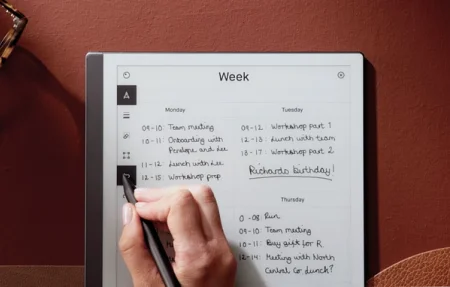 Week
Monday
09-10: Team meeting
10-11: Onboarding with
Penelope and Lee
11-12: Lunch with Lee
12-15: Workshop prep
Tuesday
09-12: Workshop part 1
12-13: Lunch with team
16-17: Workshop part 2
Richards birthday!
Thursday
-08: Run
09-10: Team meeting
10-11: Buy gift for R
12-14: Meeting with North
Central Co Lunch?